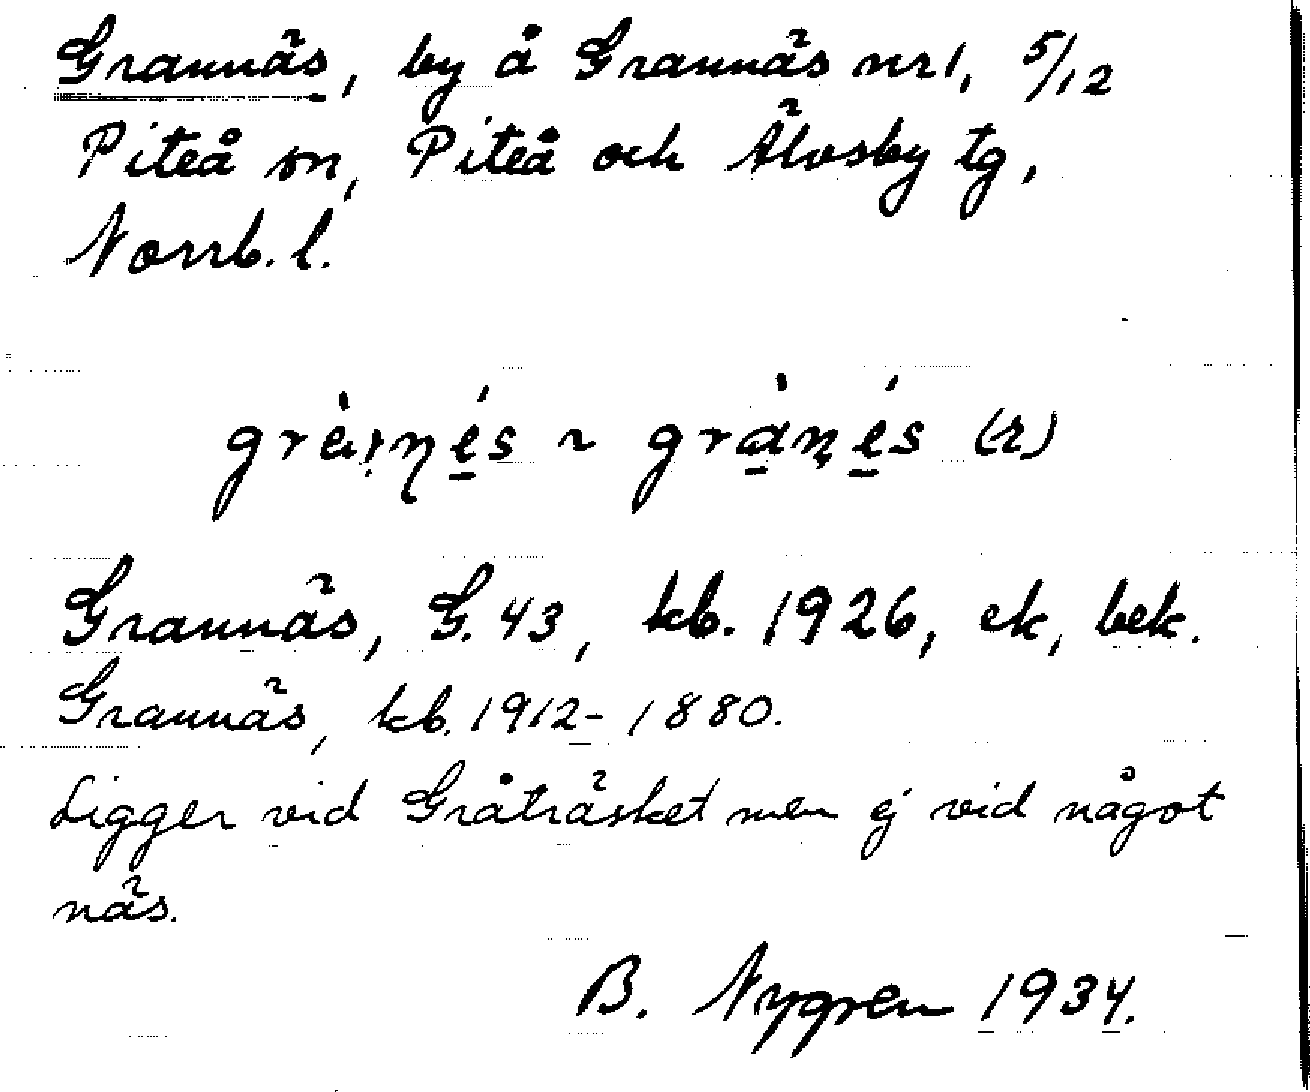 Grannäs, by å Grannäs nr 1, 5/12
Piteå sn, Piteå och Älvsby tg,
Norrb. l.
(r)
Grannäs, G. 43, kb. 1926, ek, bek.
Grannäs, kb. 1912-1880.
Ligger vid Gråträsket men ej vid något
näs.
B. Nygren 1934.